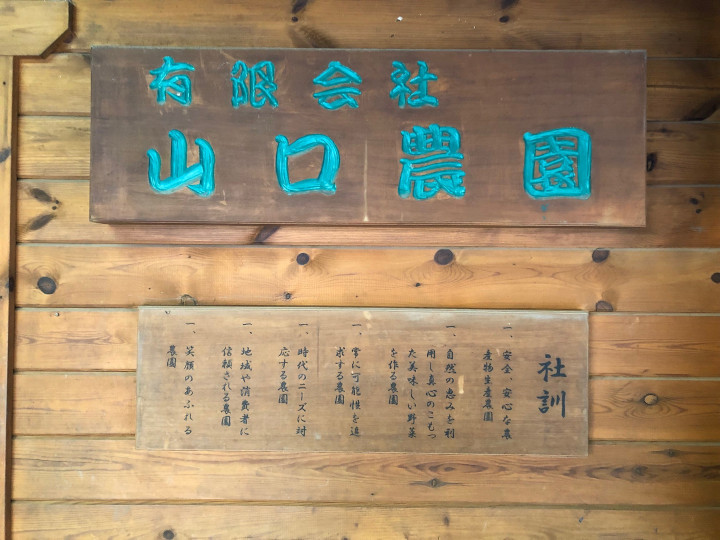 有限会社
山口農園
社訓
一、安全、安心な農
産物生産農園
一、自然の恵みを利
用し真心のこもっ
た美味しい野菜
を作る農園
一、常に可能性を追
求する農園
一、時代のニーズに対
応する農園
一、地域や消費者に
信頼される農園
一、笑顔のあふれる
農園